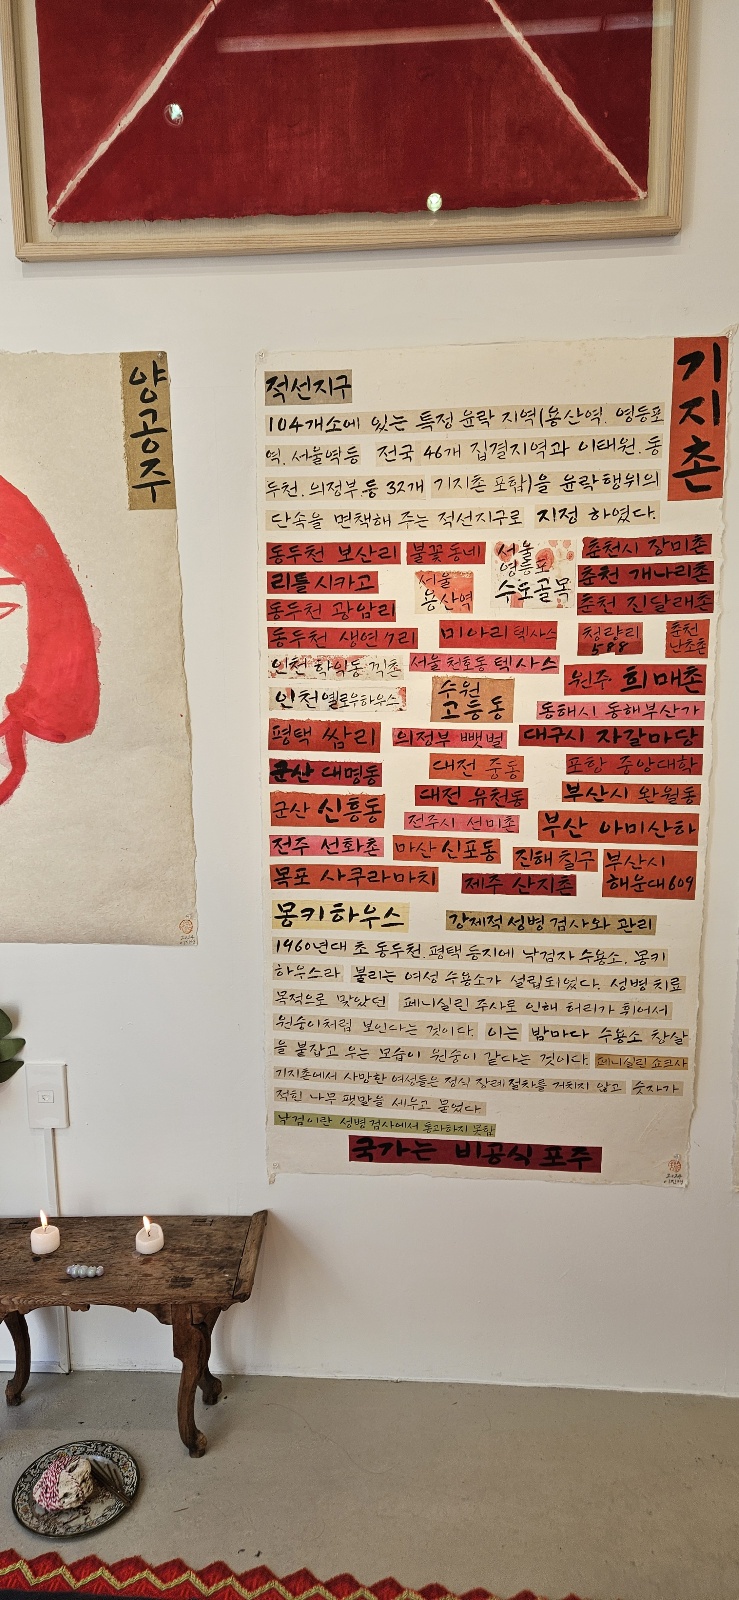 양공주
기지촌
적선지구
104개소에 있는 특정 윤락 지역(용산역. 영등포
역. 서울역등 전국 46개 집결지역과 이태원. 동
두천. 의정부.등 32개 기지촌 포함)을 윤락행위의
단속을 면책해 주는 적선지구로 지정 하였다.
동두천 보산리 불꽃동네 서울 영등포 수도골목 춘천시 장미촌
리틀시카고 서울 용산역 춘천 개나리촌
동두천 광암리 춘천 진달래촌
동두천 생연7리 미아리 텍사스 청량리 588 춘천 난초촌
인천 학익동 끽촌 서울 천호동 텍사스 원주 희매촌
인천 옐로우하우스 수원 고등동 동해시 동해부산가
평택 쌈리 의정부 뺏벌 대구시 자갈마당
군산 대명동 대전 중동 포항 중앙대학
군산 신흥동 대전 유천동 부산시 완월동
전주시 선미촌 부산 아미산하
전주 선화촌 마산 신포동 진해 칠구 부산시 해운대 609
목포 사쿠라마치 제주 산지촌
몽키하우스 강제적 성병 검사와 관리
1960년대 초 동두천. 평택 등지에 낙검자 수용소. 몽키
하우스라 불리는 여성 수용소가 설립되었다. 성병 치료
목적으로 맞았던 페니실린 주사로 인해 허리가 휘어서
원숭이처럼 보인다는 것이다. 이는 밤마다 수용소 창살
을 붙잡고 우는 모습이 원숭이 같다는 것이다. 페니실린 쇼크사
기지촌에서 사망한 여성들은 정식 장례 절차를 거치지 않고 숫자가
적힌 나무 팻말을 세우고 묻었다
낙검이란 성병검사에서 통과하지 못함
국가는 비공식 포주
2024
2024